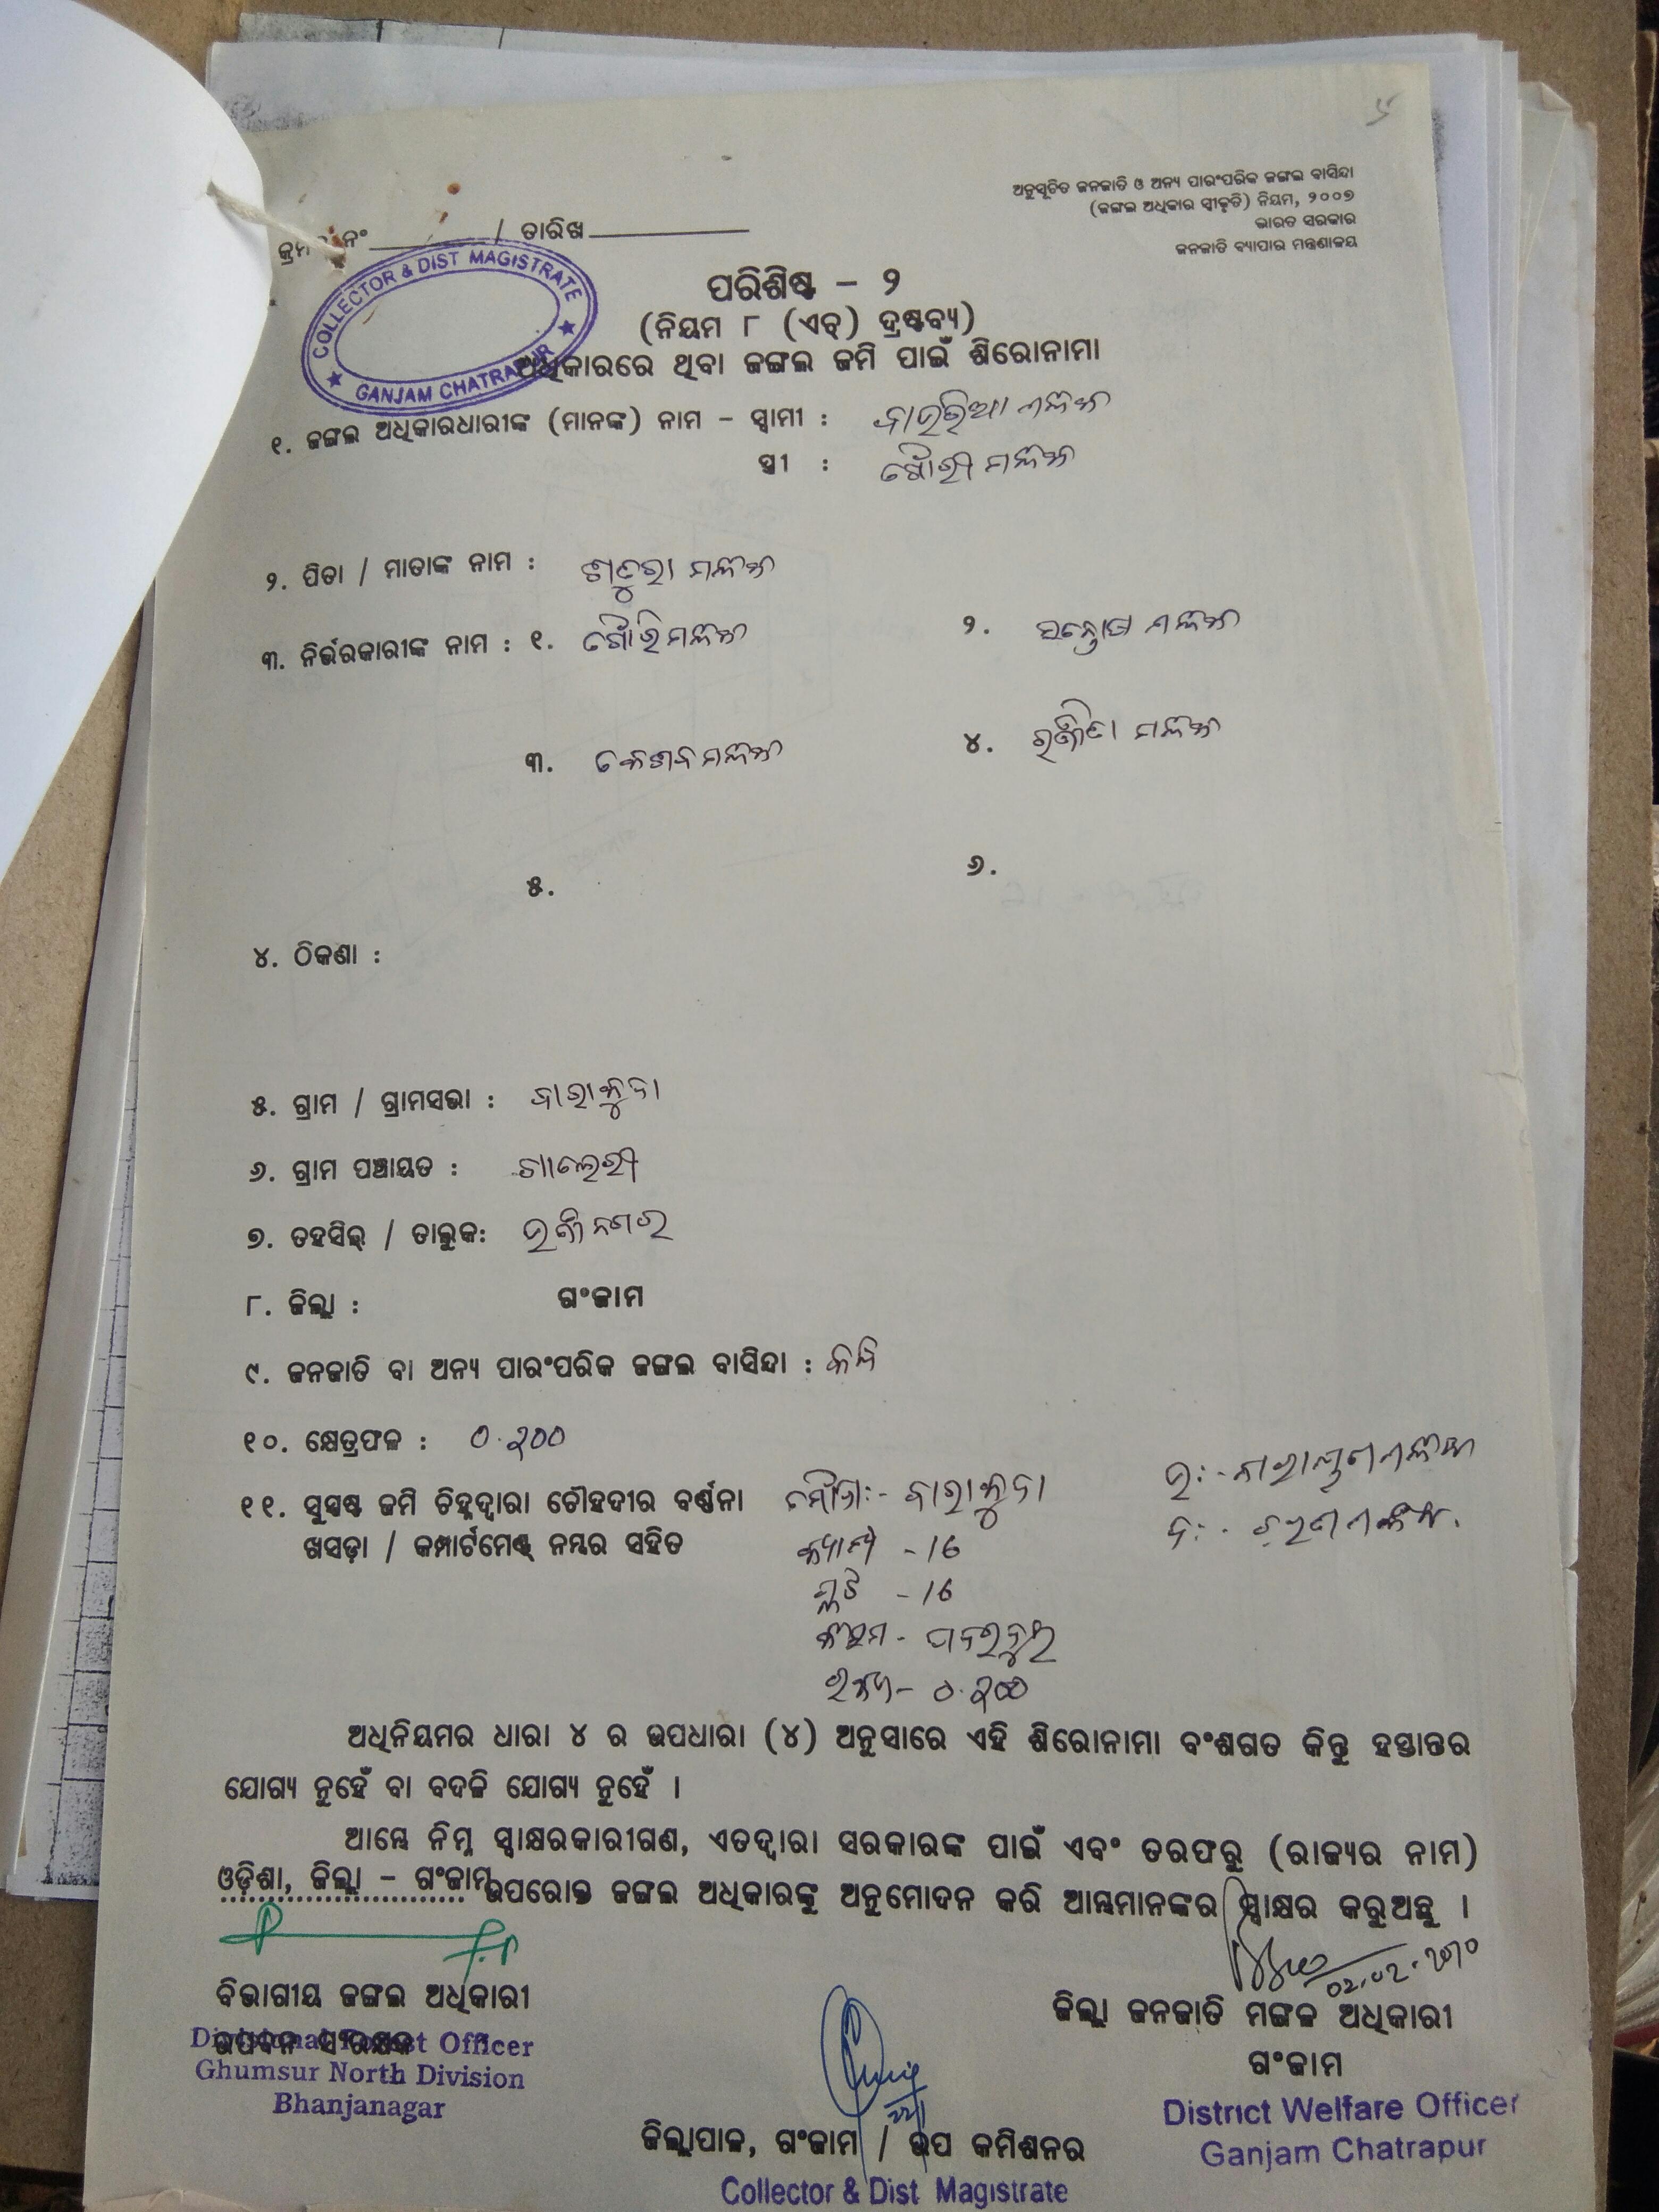 ୪
ଅନୁସୂଚିତ ଜନଜାତି ଓ ଅନ୍ୟ ପାରଂପରିକ ଜଙ୍ଗଲ ବାସିନ୍ଦା
(ଜଙ୍ଗଲ ଅଧିକାର ସ୍ୱୀକୃତି) ନିୟମ, ୨୦୦୭
ଭାରତ ସରକାର
ଜନଜାତି ବ୍ୟାପାର ମନ୍ତ୍ରଣାଳୟ
କ୍ରମ ନଂ / ତାରିଖ
COLLECTOR & DIST MAGISTRATE
GANJAM CHATRAPUR
ପରିଶିଷ୍ଟ – ୨
(ନିୟମ ୮ (ଏଚ୍) ଦ୍ରଷ୍ଟବ୍ୟ)
ଅଧିକାରରେ ଥିବା ଜଙ୍ଗଲ ଜମି ପାଇଁ ଶିରୋନାମା
୧. ଜଙ୍ଗଲ ଅଧିକାରଧାରୀଙ୍କ (ମାନଙ୍କ) ନାମ – ସ୍ୱାମୀ : ମଲ୍ଲିକ
ସ୍ତ୍ରୀ : ଗୌରୀ ମଲ୍ଲିକ
୨. ପିତା / ମାତାଙ୍କ ନାମ : ମଲ୍ଲିକ
୩. ନିର୍ଭରକାରୀଙ୍କ ନାମ : ୧. ଗୌରି ମଲ୍ଲିକ ୨. ସନ୍ତୋଷ ମଲ୍ଲିକ
୩. କେଶବ ମଲ୍ଲିକ ୪. ରଞ୍ଜିତା ମଲ୍ଲିକ
୫. ୬.
୪. ଠିକଣା :
୫. ଗ୍ରାମ / ଗ୍ରାମସଭା :
୬. ଗ୍ରାମ ପଞ୍ଚାୟତ : ଗାଲେରୀ
୭. ତହସିଲ୍ / ତାଲୁକ: ଭଞ୍ଜନଗର
୮. ଜିଲ୍ଲା : ଗଂଜାମ
୯. ଜନଜାତି ବା ଅନ୍ୟ ପାରଂପରିକ ଜଙ୍ଗଲ ବାସିନ୍ଦା : କନ୍ଧ
୧୦. କ୍ଷେତ୍ରଫଳ : ୦.୨୦୦
୧୧. ସୁସ୍ପଷ୍ଟ ଜମି ଚିହ୍ନଦ୍ୱାରା ଚୌହଦୀର ବର୍ଣ୍ଣନା ମୌଜା:- ଉ:- ନାରାୟଣ ମଲ୍ଲିକ
ଖସଡ଼ା / କମ୍ପାର୍ଟମେଣ୍ଟ୍ ନମ୍ବର ସହିତ - 16 ଦ:- ମଲ୍ଲିକ.
ପ୍ଲଟ - 16
କିସମ -
ରକବା - ୦.୨୦୦
ଅଧିନିୟମର ଧାରା ୪ ର ଉପଧାରା (୪) ଅନୁସାରେ ଏହି ଶିରୋନାମା ବଂଶଗତ କିନ୍ତୁ ହସ୍ତାନ୍ତର
ଯୋଗ୍ୟ ନୁହେଁ ବା ବଦଳି ଯୋଗ୍ୟ ନୁହେଁ ।
ଆମ୍ଭେ ନିମ୍ନ ସ୍ୱାକ୍ଷରକାରୀଗଣ, ଏତଦ୍ୱାରା ସରକାରଙ୍କ ପାଇଁ ଏବଂ ତରଫରୁ (ରାଜ୍ୟର ନାମ)
ଓଡ଼ିଶା, ଜିଲ୍ଲା – ଗଂଜାମ ଉପରୋକ୍ତ ଜଙ୍ଗଲ ଅଧିକାରଙ୍କୁ ଅନୁମୋଦନ କରି ଆମ୍ଭମାନଙ୍କର ସ୍ୱାକ୍ଷର କରୁଅଛୁ ।
ବିଭାଗୀୟ ଜଙ୍ଗଲ ଅଧିକାରୀ
ଉପବନ ସଂରକ୍ଷକ
Divisional Forest Officer
Ghumsur North Division
Bhanjanagar
ଜିଲ୍ଲା ଜନଜାତି ମଙ୍ଗଳ ଅଧିକାରୀ
ଗଂଜାମ
District Welfare Officer
Ganjam Chatrapur
ଜିଲ୍ଲାପାଳ, ଗଂଜାମ / ଉପ କମିଶନର
Collector & Dist Magistrate